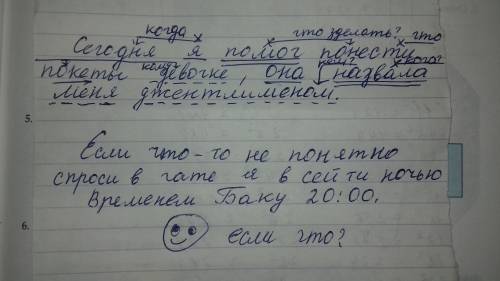 когда что зделать? что
Сегодня я помог понести
кому? кем? кого?
покеты девочке, она назвала
меня джентлименом.
5.
Если что-то не понятно
спроси в чате я в сейти ночью
Временем Баку 20:00.
6.
если что?